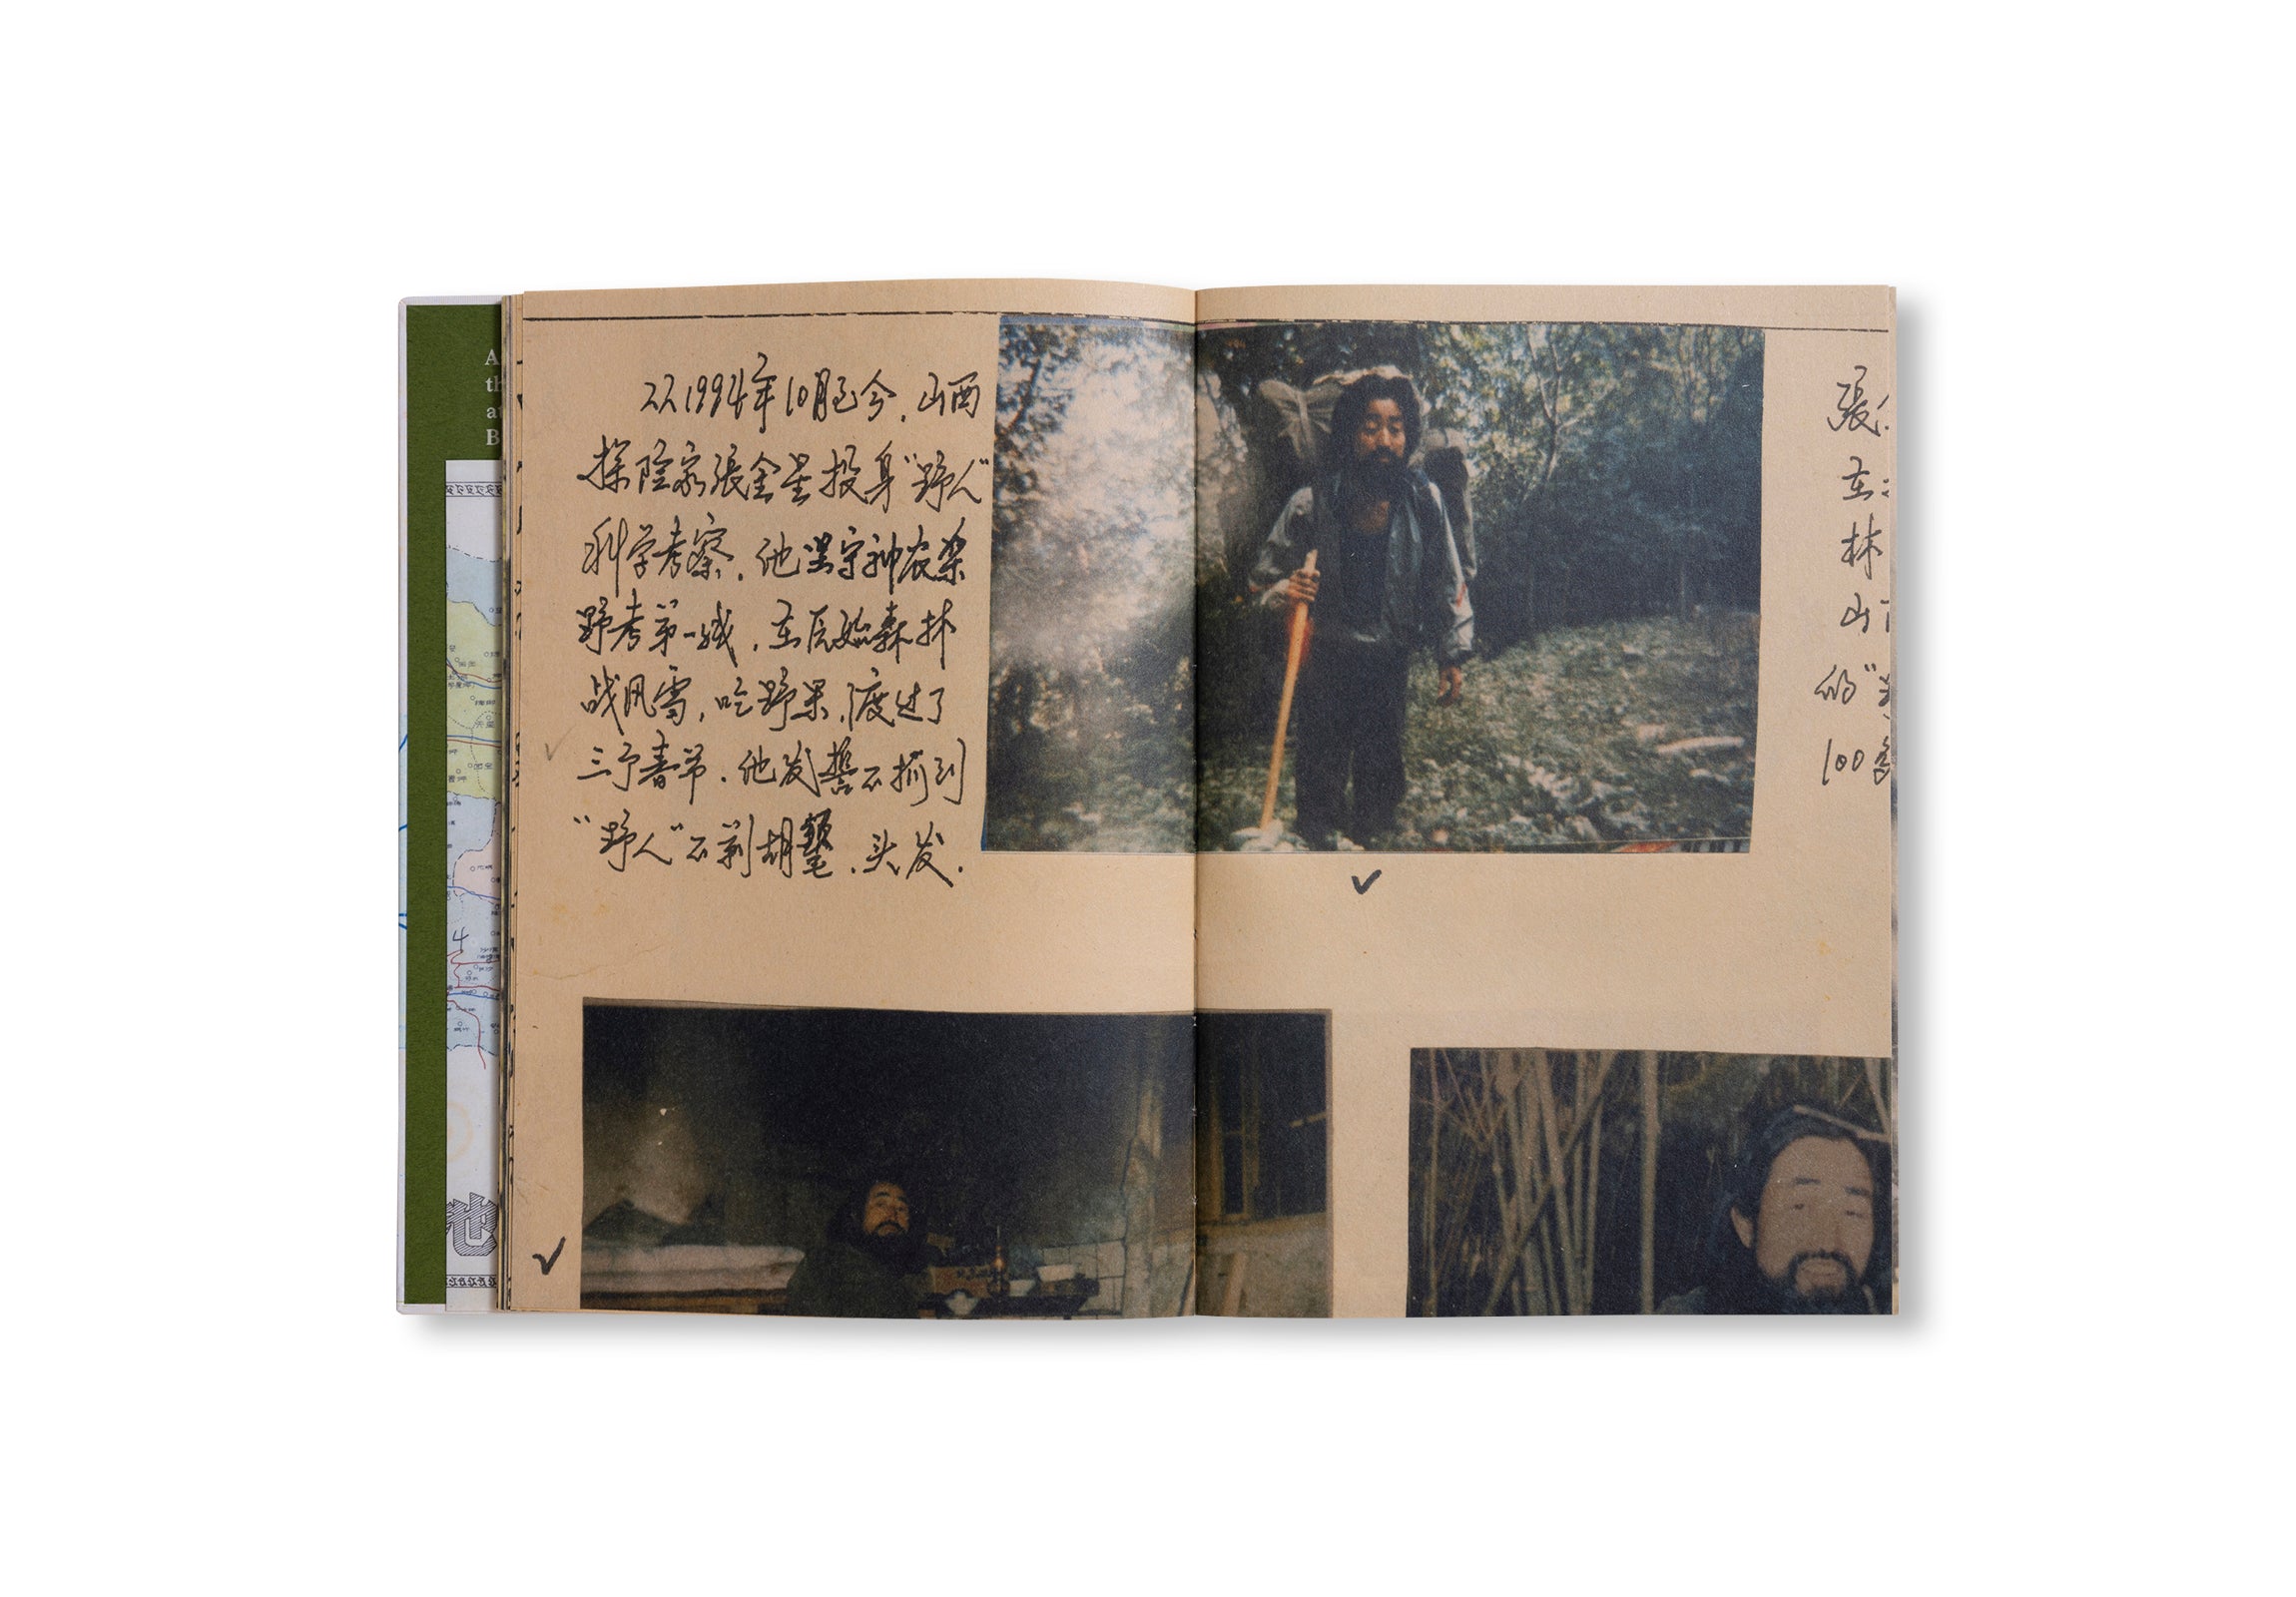 A
th
at
B
从1994年10月至今,山西
探险家張金星投身“野人”
科学考察.他坚守神农架
野考第一线,在原始森林
战风雪,吃野果,渡过了
三个春节.他发誓不抓到
“野人”不剃胡鬚、头发.
張
在
林
山
的“
100